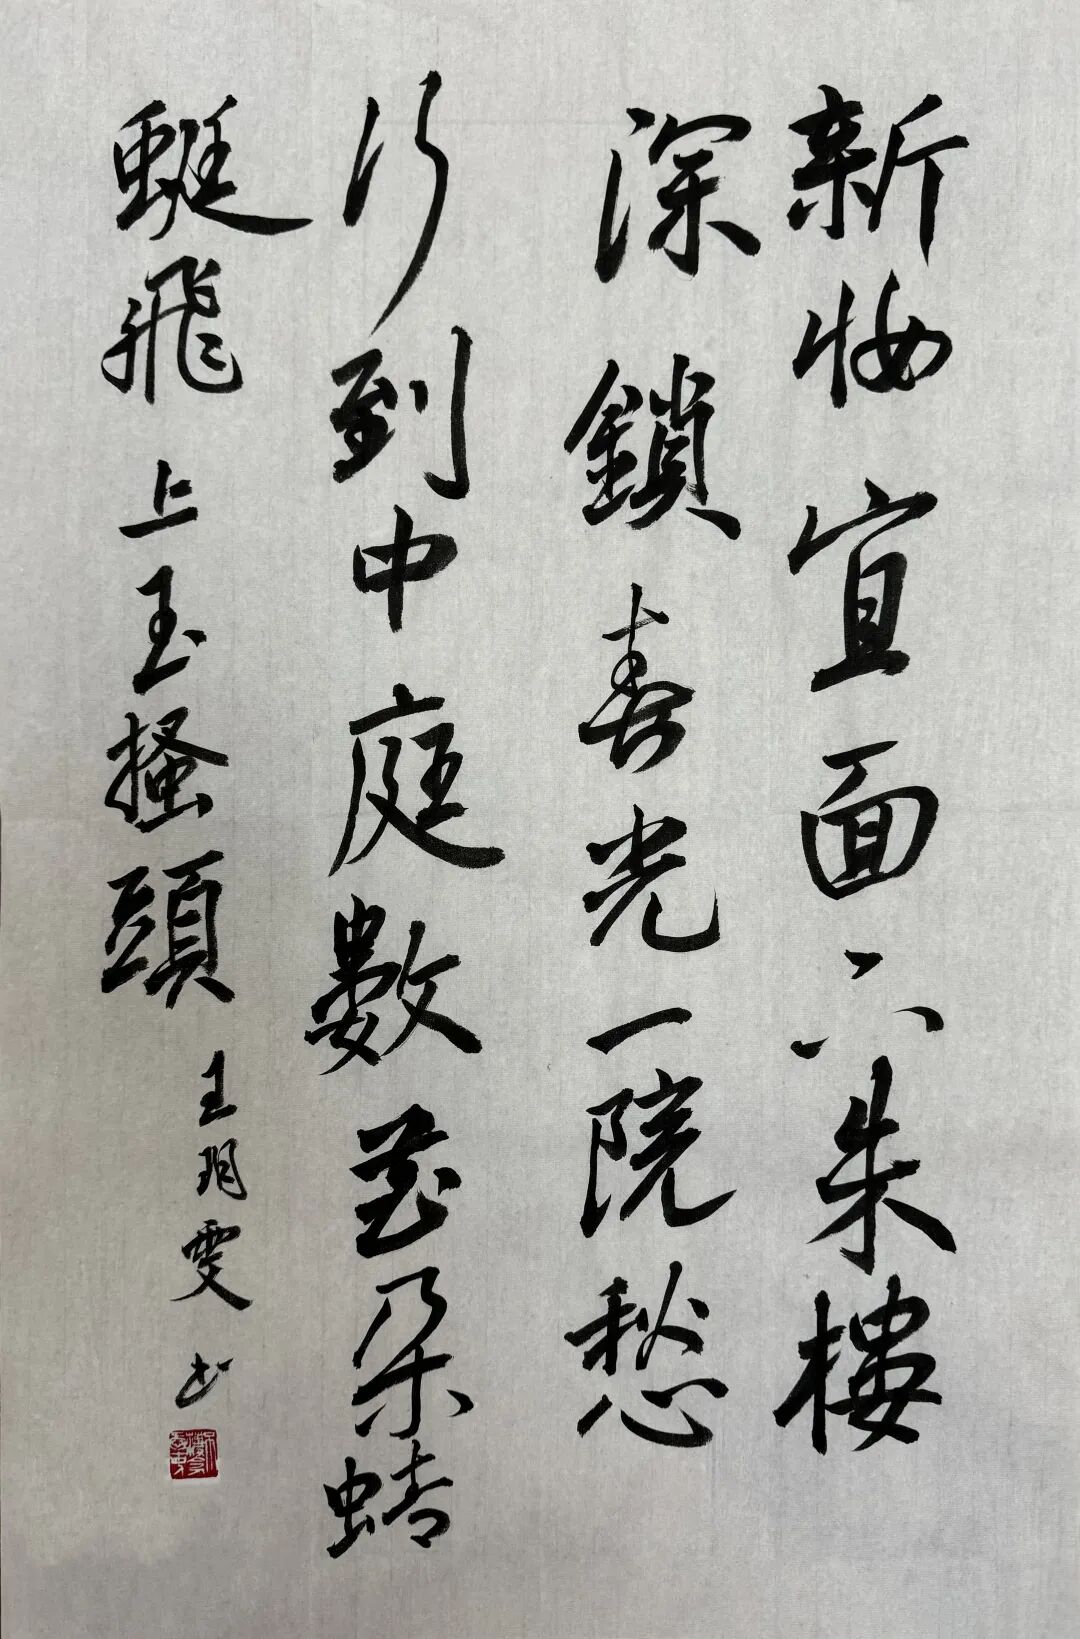 新妆宜面下朱樓
深鎖春光一院愁
行到中庭數花朵蜻
蜓飛上玉搔頭
王玥雯书